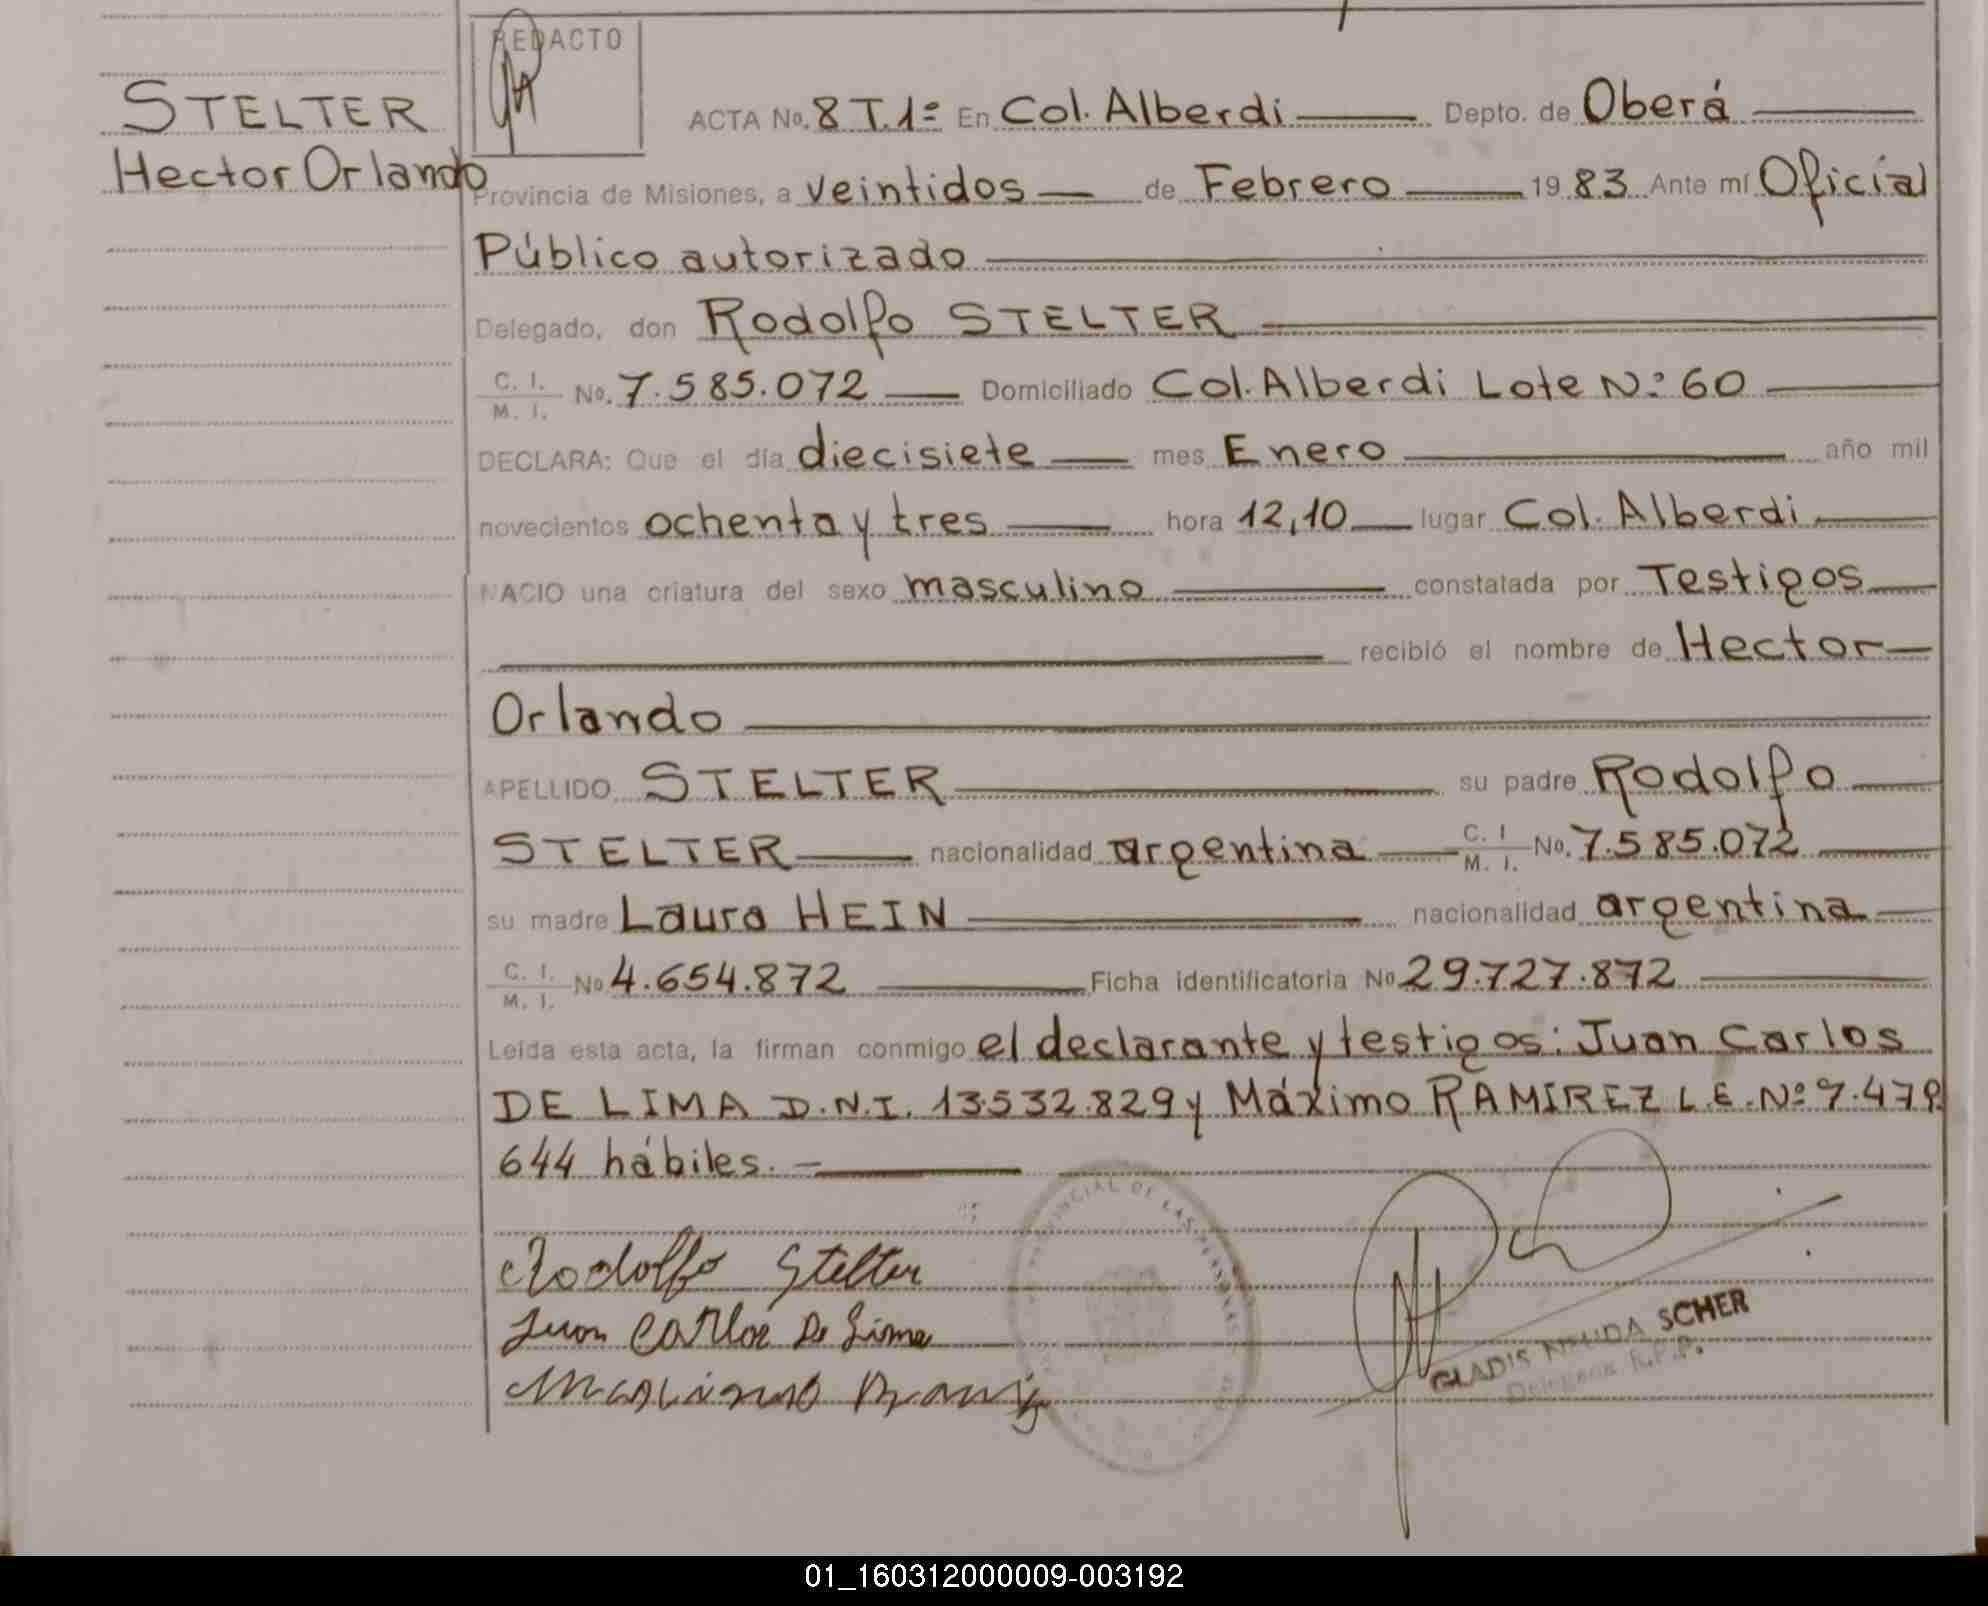 REDACTO
STELTER
Hector Orlando
ACTA No. 8 T.1º En Col. Alberdi Depto. de Oberá
Provincia de Misiones, a veintidos de Febrero 19 83 Ante mí Oficial
Público autorizado
Delegado, don Rodolfo STELTER
C. I. M. I. No. 7.585.072 Domiciliado Col. Alberdi Lote Nº 60
DECLARA: Que el día diecisiete mes Enero año mil
novecientos ochenta y tres hora 12,10 lugar Col. Alberdi
NACIO una criatura del sexo masculino constatada por Testigos
recibió el nombre de Hector
Orlando
APELLIDO STELTER su padre Rodolfo
STELTER nacionalidad argentina C. I M. I. No. 7.585.072
su madre Laura HEIN nacionalidad argentina
C. I. M. I. No 4.654.872 Ficha identificatoria No 29.727.872
Leída esta acta, la firman conmigo el declarante y testigos: Juan Carlos
DE LIMA D.N.I. 13.532.829 y Máximo RAMIREZ L.E. Nº 7.479.
644 hábiles.
Rodolfo Stelter
Juan Carlos De Lima
GLADIS SCHER
Delegada R.P.P.
01_160312000009-003192